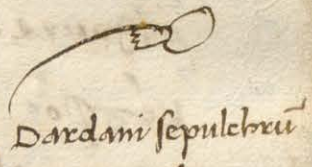 Dardani sepulchrū